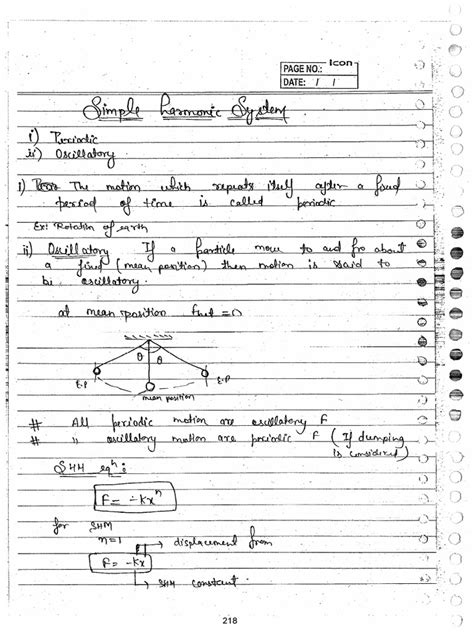 Icon
PAGE NO.:
DATE: / /
Simple Harmonic System
i) Periodic
ii) Oscillatory
i) The motion which repeats itself after a fixed
period of time is called periodic
Ex: Rotation of earth
ii) Oscillatory If a particle move to and fro about
a fixed (mean position) then motion is said to
be oscillatory.
at mean position Fnet = 0
θ θ
E.P E.P
mean position
# All periodic motion are oscillatory F
# " oscillatory motion are periodic F (If dumping
is considered)
SHM eqn :
F = -kxⁿ
for SHM
n=1 → displacement from
F = -kx
→ SHM constant.
218